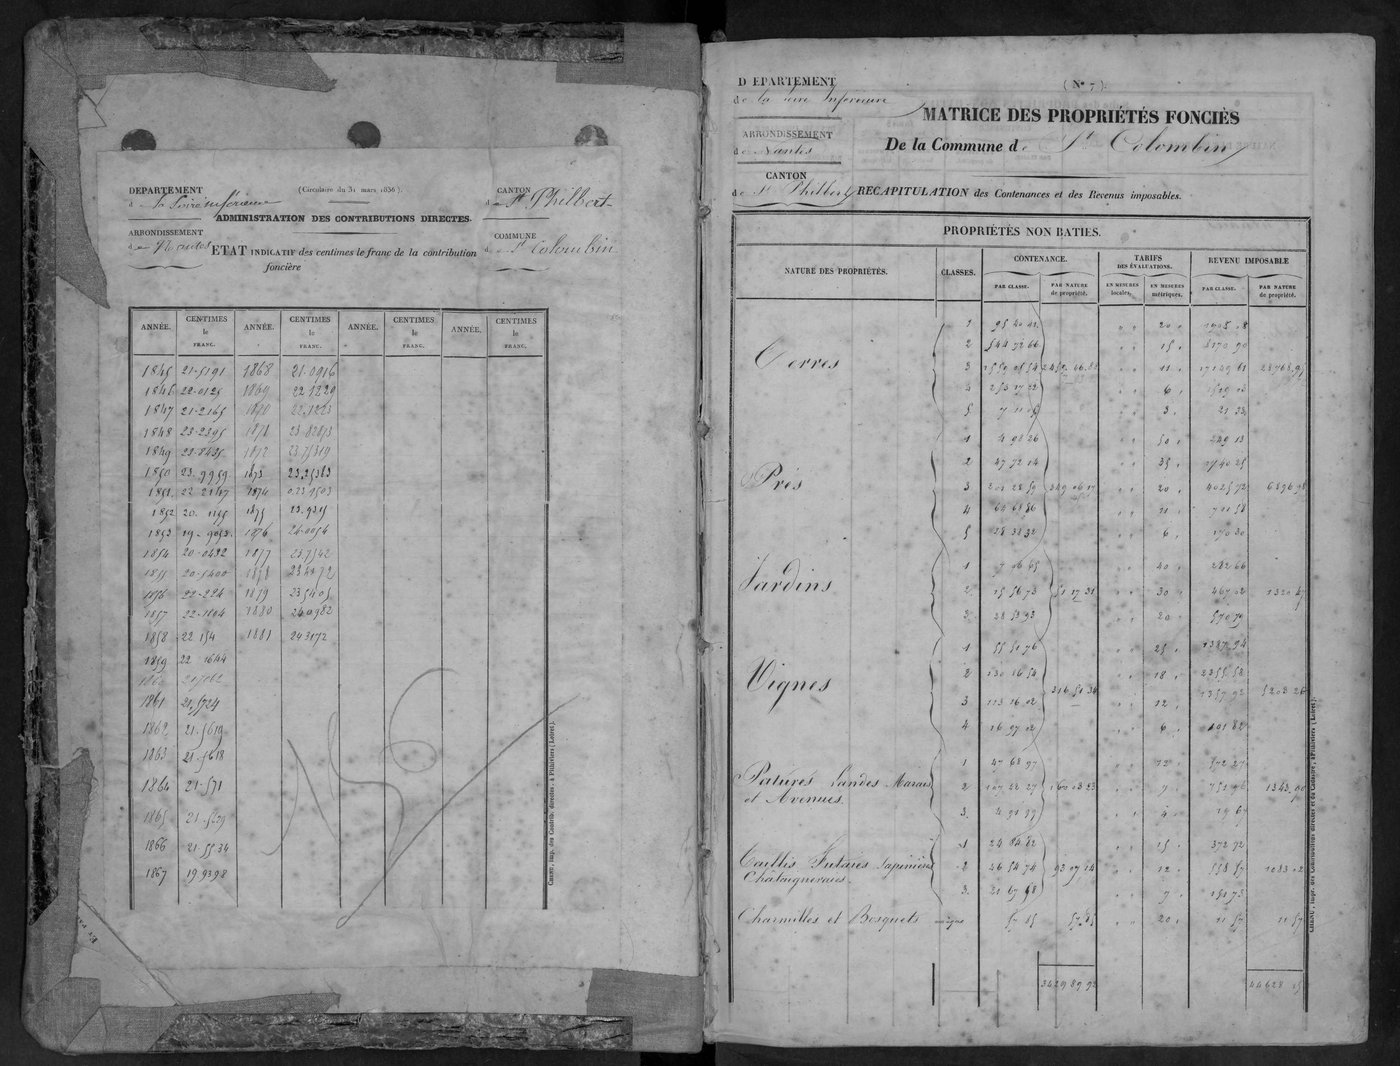 DEPARTEMENT
de la Loire inférieure
ARRONDISSEMENT
de Nantes
(Circulaire du 31 mars 1836).
ADMINISTRATION DES CONTRIBUTIONS DIRECTES.
ETAT INDICATIF des centimes le franc de la contribution
foncière
CANTON
de St Philbert
COMMUNE
de St Colombin
ANNÉE. CENTIMES le FRANC. ANNÉE. CENTIMES le FRANC. ANNÉE. CENTIMES le FRANC. ANNÉE. CENTIMES le FRANC.
1845 21-5191 1868 21.0916
1846 22-0125 1869 22.1229
1847 21-2165 1870 22.1223
1848 23-2395 1871 23.82873
1849 23-8435 1872 23.75319
1850 23.9959 1873 23.25383
1851 22 2147 1874 0.23.1503
1852 20. 1155 1875 23.9315
1853 19-9053 1876 24-0054
1854 20-0432 1877 23.7542
1855 20-5400 1878 23.4472
1856 22-224 1879 23.5405
1857 22-1804 1880 24.0982
1858 22 154 1881 24.3172
1859 22 1644
1861 21,5724
1862 21-5619
1863 21-5618
1864 21-571
1865 21-5629
1866 21.5534
1867 19.9398
CHENU, imp. des Contrib. directes, à Pithiviers (Loiret).
DEPARTEMENT
de la Loire Inférieure
ARRONDISSEMENT
de Nantes
CANTON
de St Philbert
(No 7)
MATRICE DES PROPRIÉTÉS FONCIÈS
De la Commune de St Colombin
RECAPITULATION des Contenances et des Revenus imposables.
PROPRIÉTÉS NON BATIES.
NATURE DES PROPRIÉTÉS. CLASSES. CONTENANCE. TARIFS DES ÉVALUATIONS. REVENU IMPOSABLE
PAR CLASSE. PAR NATURE de propriété. EN MESURES locales. EN MESURES métriques. PAR CLASSE. PAR NATURE de propriété.
1 95 40 42 " " 20 " 1908 08
2 544 72 66 " " 15 " 8170 90
Terres 3 1559 05 54 2459 66 82 " " 11 " 17149 61 28768 95
4 253 17 02 " " 6 " 1519 02
5 7 11 05 " " 3 " 21 33
1 4 98 26 " " 50 " 249 13
2 47 72 14 " " 35 " 1740 25
Prés 3 201 28 59 349 06 17 " " 20 " 4025 72 6896 98
4 64 68 86 " " 11 " 711 58
5 28 38 32 " " 6 " 170 30
1 7 06 65 " " 40 " 282 66
Jardins 2 15 56 73 51 17 31 " " 30 " 467 02 1320 47
3 28 53 93 " " 20 " 570 79
1 55 51 76 " " 25 " 1387 94
2 130 16 54 " " 18 " 2355 58
Vignes 316 51 34 5203 26
3 113 16 02 " " 12 " 1357 92
4 16 97 02 " " 6 " 101 82
1 47 68 97 " " 12 " 572 27
Patures Landes Marais 2 107 42 27 160 03 23 " " 7 " 751 96 1343.90
et Avenues. 3. 4 91 99 " " 4 " 19 67
1 24 84 82 " " 15 " 372 72
Taillis Futaies Sapinières 2 46 54 74 93 07 14 " " 12 " 558 57 1083 02
Châtaigneraies. 3. 21 67 58 " " 7 " 151 73
Charmilles et Bosquets unique 57 85 57 85 " " 20 " 11 57 11 57
3429 89 92 44628 15
CHENU, impr. des Contributions directes et du Cadastre, à Pithiviers (Loiret).